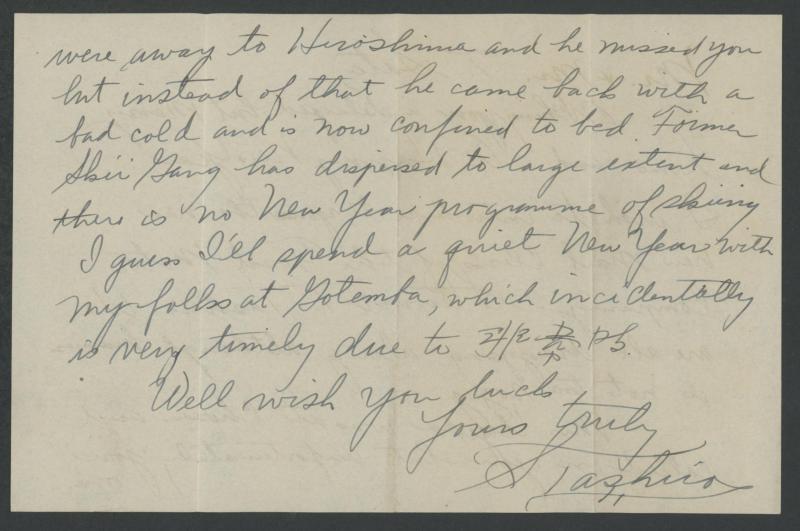 were away to Hiroshima and he missed you
but instead of that he came back with a
bad cold and is now confined to bed. Former
Skii Gang has dispersed to large extent and
there is no New Year programme of skiing
I guess I'll spend a quiet New Year with
my folks at Gotemba, which incidentally
is very timely due to
Well wish you luck
Yours truly